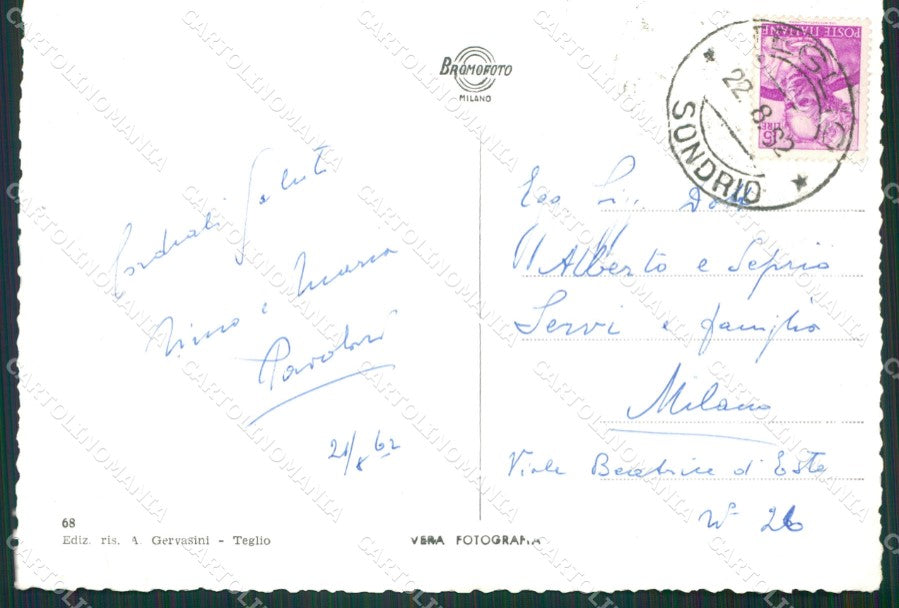 BROMOFOTO
MILANO
POSTE ITALIANE
LIRE 15
TEGLIO
22.8.62
SONDRIO
Cordiali Saluti
Nino e Maria
21/8 62
Egg. Sig. Dott.
Alberto e
Servi e famiglia
Milano
Viale Beatrice d'Este
N° 26
68
Ediz. ris. A. Gervasini - Teglio
VERA FOTOGRAFIA
CARTOLINOMANIA